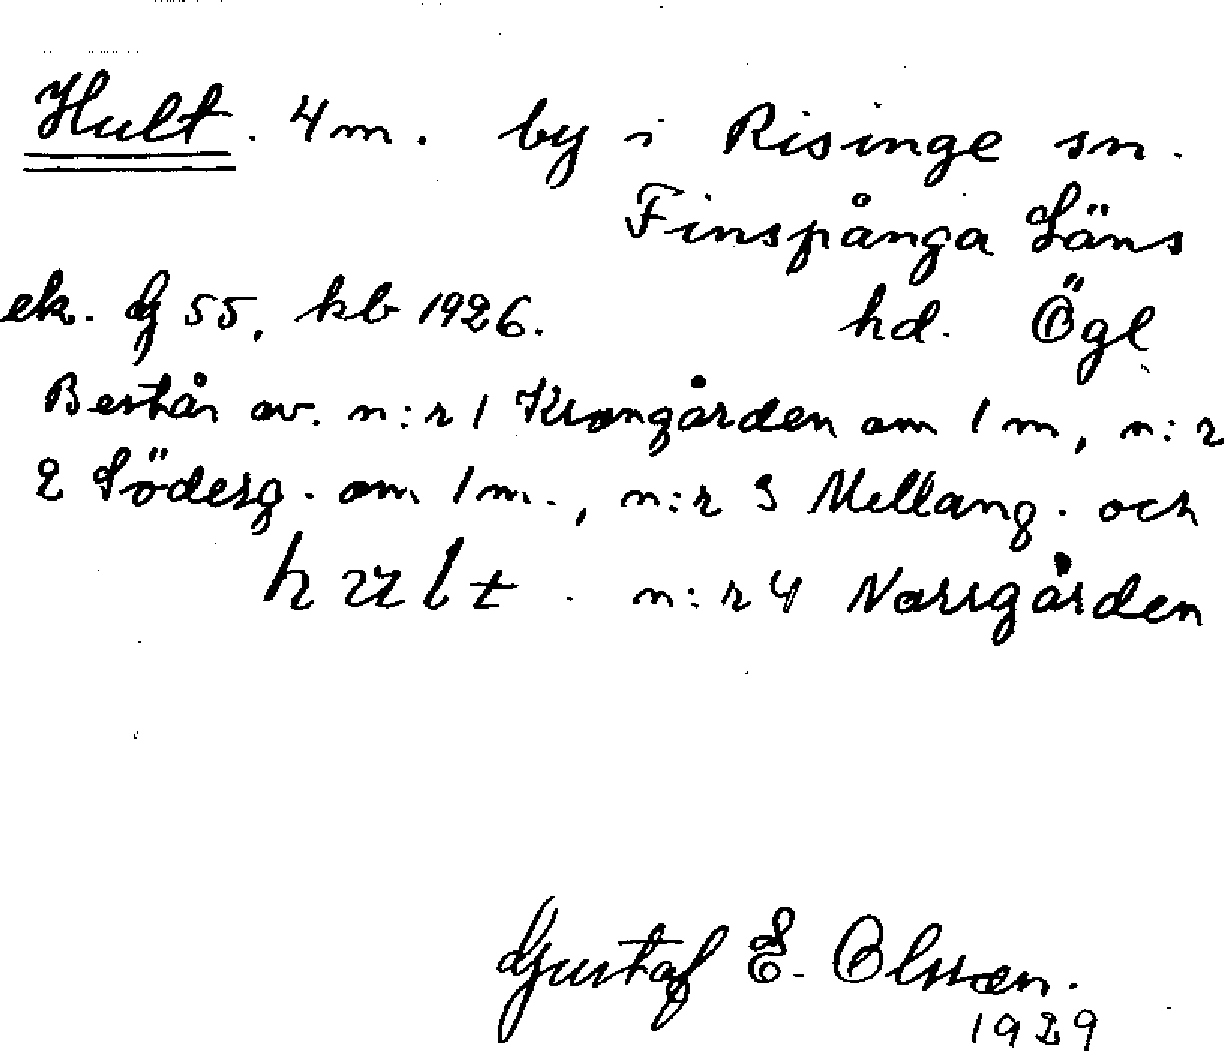 Hult. 4 m. by i Risinge sn.
Finspånga Läns
ek. G 55, kb 1926. hd. Ögl
Består av. n:r 1 Krongården om 1 m, n:r
2 Söderg. om 1 m., n:r 3 Mellang. och
hult. n:r 4 Norrgården
Gustaf E. Olsson.
1929